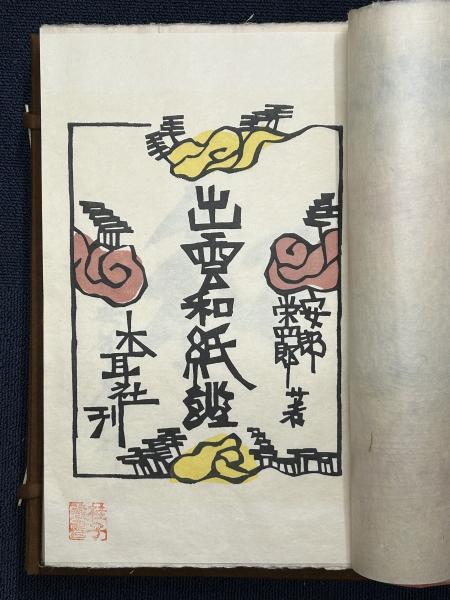 安部
栄四郎 著
出雲和紙鑑
木耳社
刊